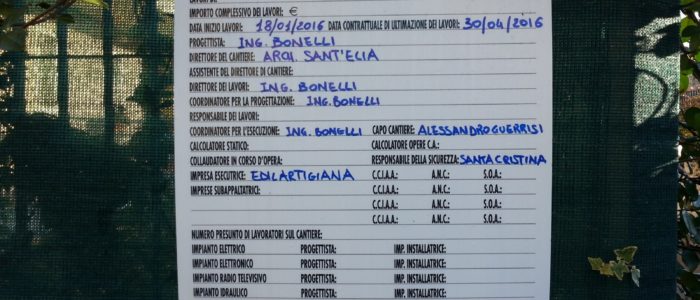 IMPORTO COMPLESSIVO DEI LAVORI: €
DATA INIZIO LAVORI: 18/01/2016 DATA CONTRATTUALE DI ULTIMAZIONE DEI LAVORI: 30/04/2016
PROGETTISTA: ING. BONELLI
DIRETTORE DEL CANTIERE: ARCH. SANT'ELIA
ASSISTENTE DEL DIRETTORE DI CANTIERE:
DIRETTORE DEI LAVORI: ING. BONELLI
COORDINATORE PER LA PROGETTAZIONE: ING. BONELLI
RESPONSABILE DEI LAVORI:
COORDINATORE PER L'ESECUZIONE: ING. BONELLI CAPO CANTIERE: ALESSANDRO GUERRISI
CALCOLATORE STATICO: CALCOLATORE OPERE C.A.:
COLLAUDATORE IN CORSO D'OPERA: RESPONSABILE DELLA SICUREZZA: SANTA CRISTINA
IMPRESA ESECUTRICE: EDILARTIGIANA C.C.I.A.A.: A.N.C.: S.O.A.:
IMPRESE SUBAPPALTATRICI: C.C.I.A.A.: A.N.C.: S.O.A.:
C.C.I.A.A.: A.N.C.: S.O.A.:
C.C.I.A.A.: A.N.C.: S.O.A.:
NUMERO PRESUNTO DI LAVORATORI SUL CANTIERE:
IMPIANTO ELETTRICO PROGETTISTA: IMP. INSTALLATRICE:
IMPIANTO ELETTRONICO PROGETTISTA: IMP. INSTALLATRICE:
IMPIANTO RADIO TELEVISIVO PROGETTISTA: IMP. INSTALLATRICE:
IMPIANTO IDRAULICO PROGETTISTA: IMP. INSTALLATRICE: